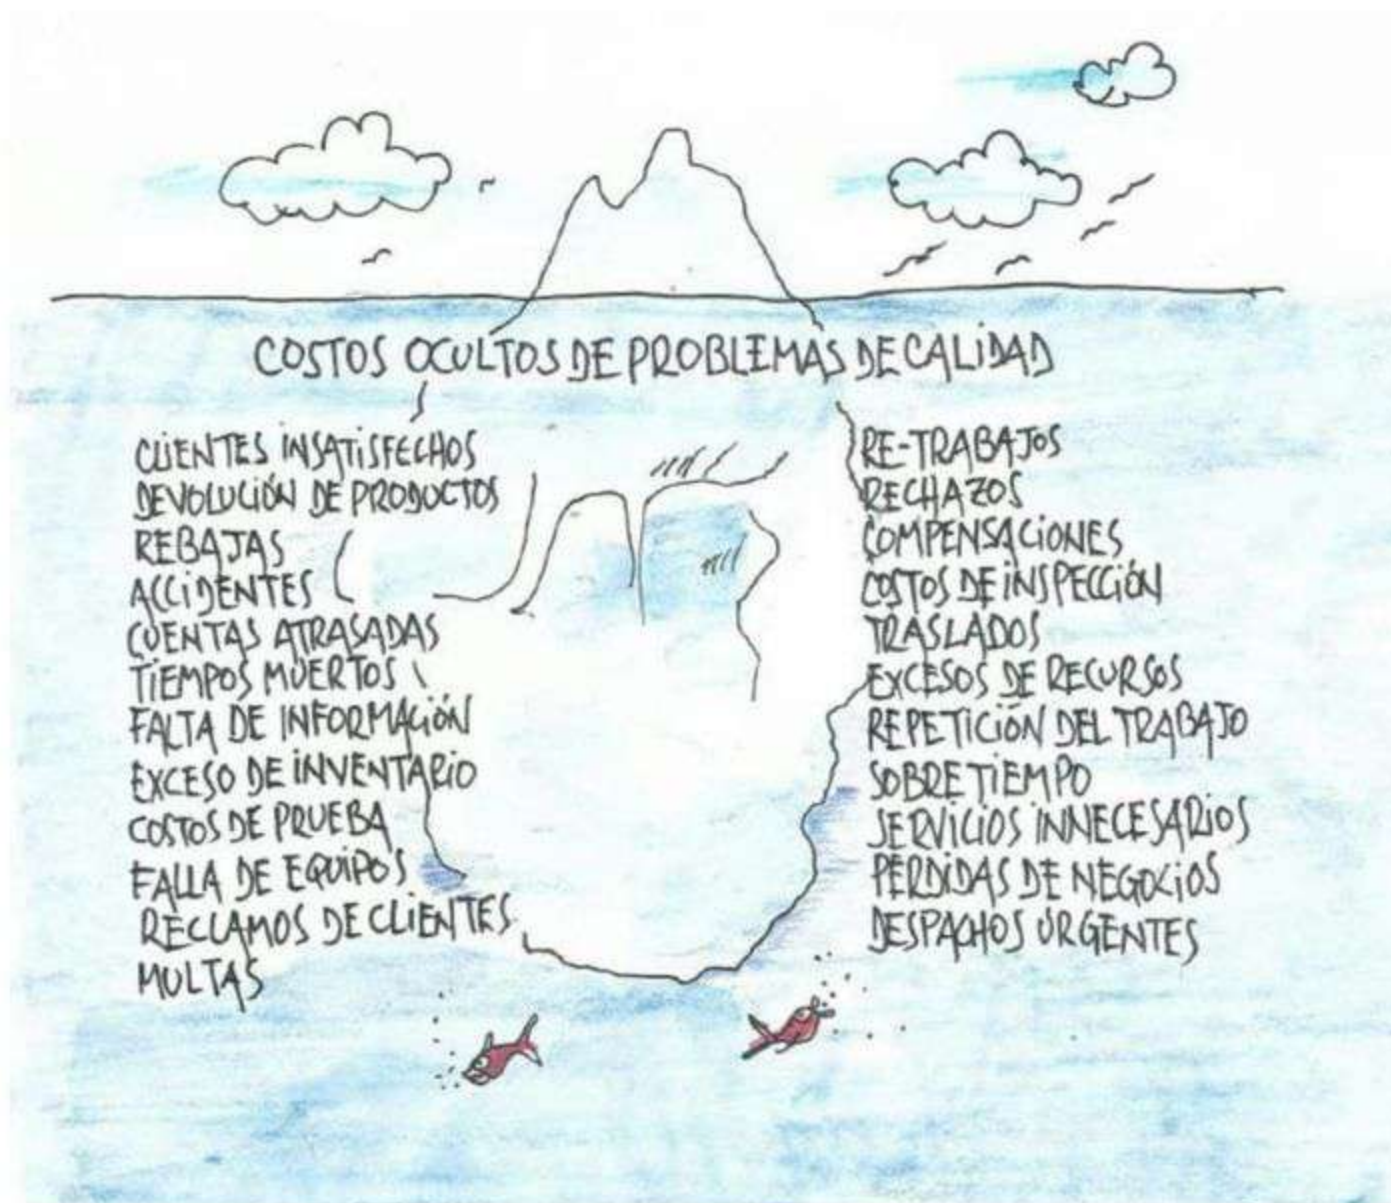 COSTOS OCULTOS DE PROBLEMAS DE CALIDAD
CLIENTES INSATISFECHOS
DEVOLUCIÓN DE PRODUCTOS
REBAJAS
ACCIDENTES
CUENTAS ATRASADAS
TIEMPOS MUERTOS
FALTA DE INFORMACIÓN
EXCESO DE INVENTARIO
COSTOS DE PRUEBA
FALLA DE EQUIPOS
RECLAMOS DE CLIENTES
MULTAS
RE-TRABAJOS
RECHAZOS
COMPENSACIONES
COSTOS DE INSPECCIÓN
TRASLADOS
EXCESOS DE RECURSOS
REPETICIÓN DEL TRABAJO
SOBRETIEMPO
SERVICIOS INNECESARIOS
PERDIDAS DE NEGOCIOS
DESPACHOS URGENTES